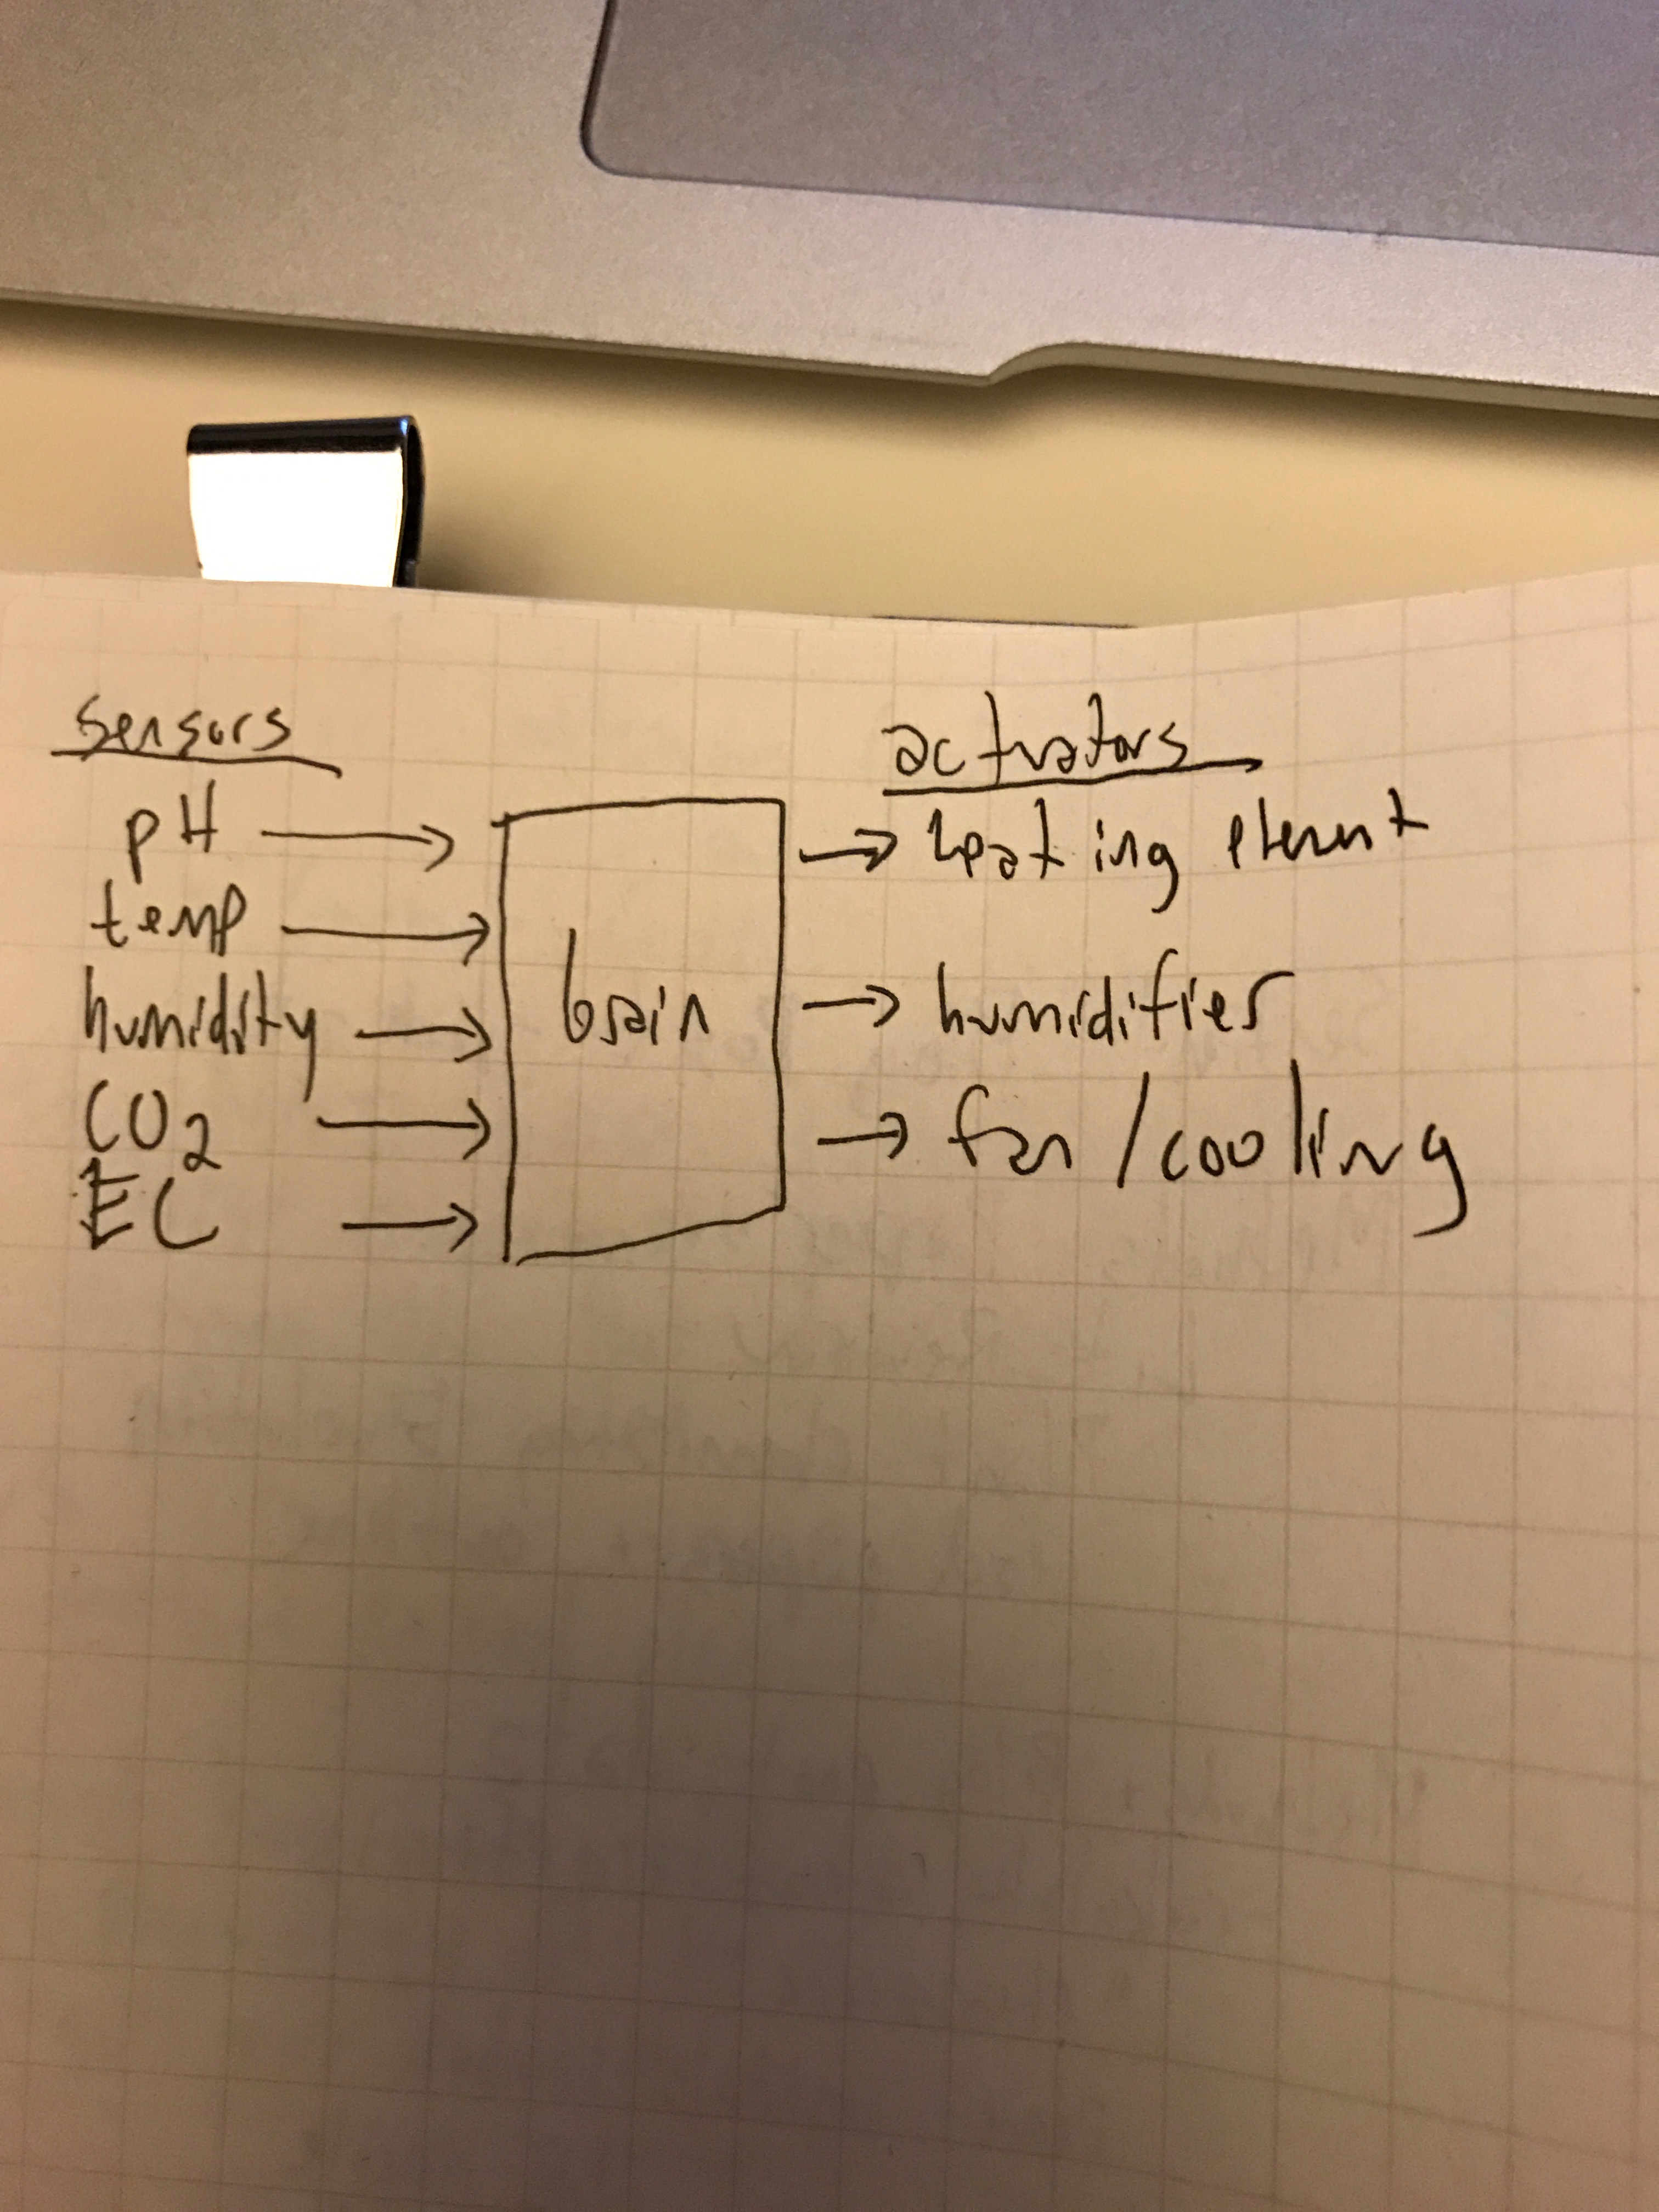 sensors
pH
temp
humidity
CO₂
EC
brain
actuators
heating element
humidifier
fan/cooling